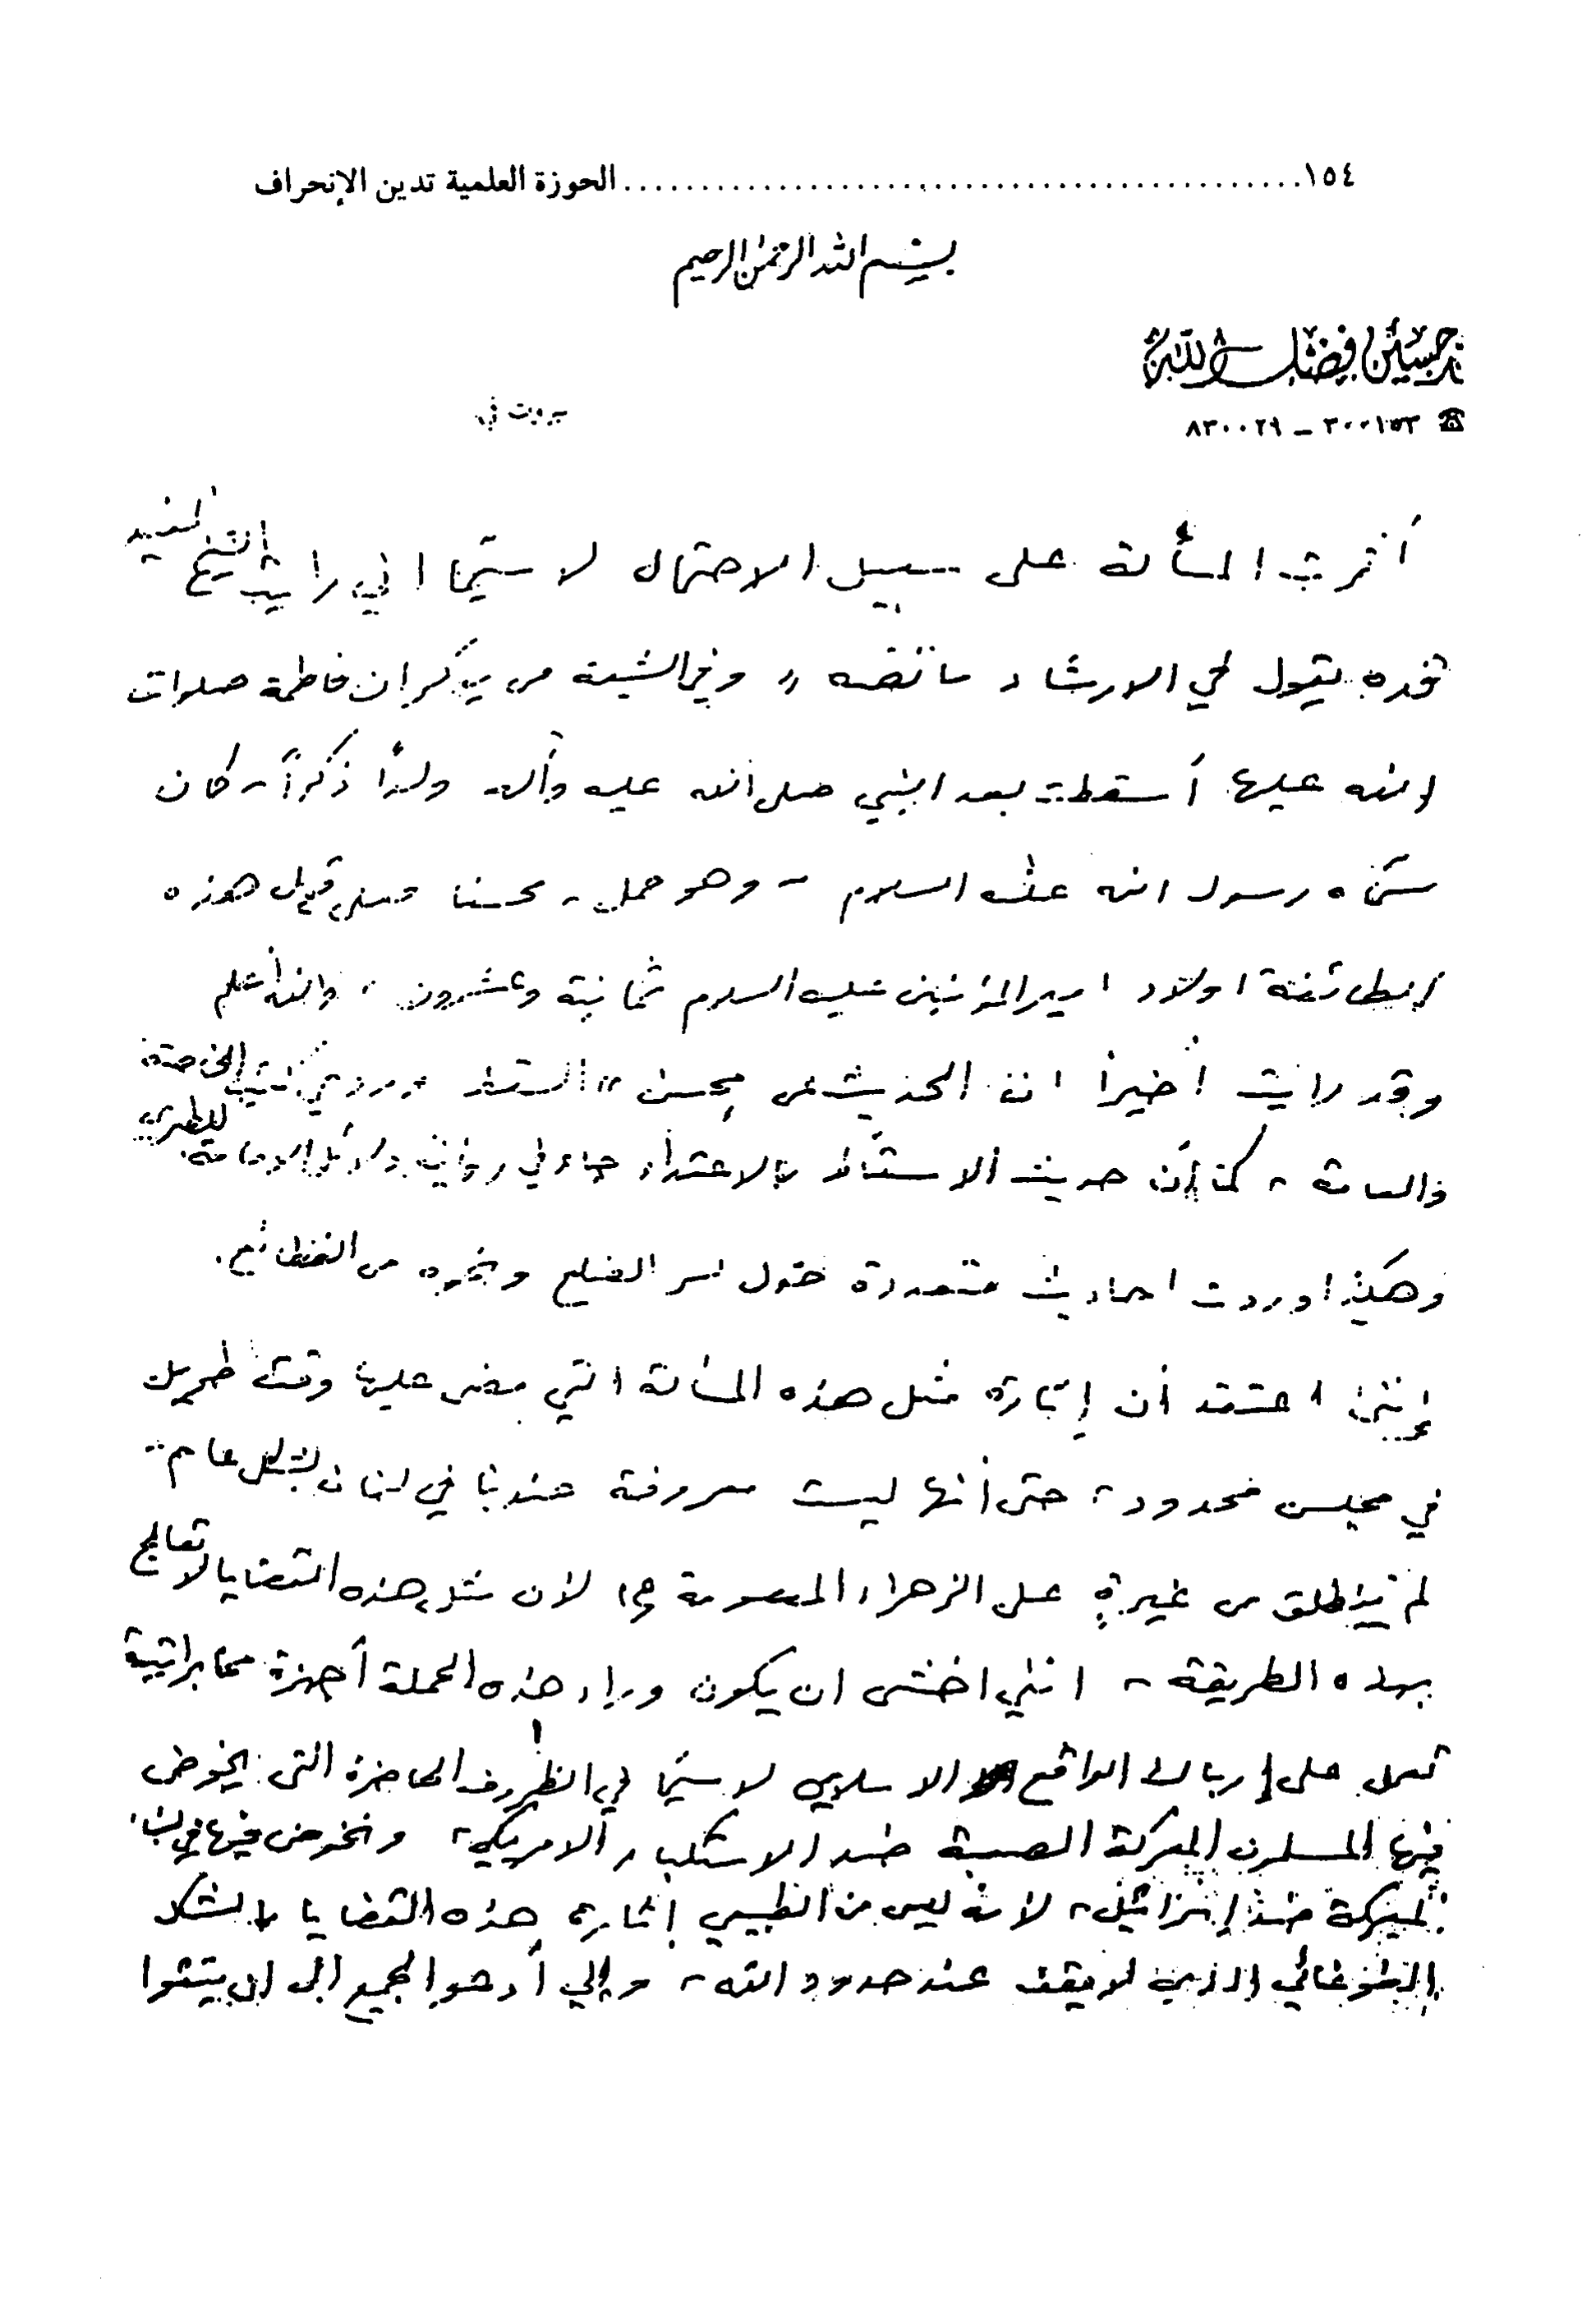 ١٥٤ ........................................ الحوزة العلمية تدين الإنحراف
بسم الله الرحمن الرحيم
حسين فضل الله
بيروت في
☎ ٣٠٠١٥٣ – ٨٣٠٠٢٩
أثرت المسألة على سبيل الاحتمال لا سيّما اني رايت الشيخ المفيد
يقول في الارشاد ما نصّه » وفي الشيعة من يذكر ان فاطمة صلوات
الله عليها أسقطت بعد النبي صلى الله عليه وآله ولداً ذكراً، كان
سمّاه رسول الله عليه السلام - وهو حمل - محسنا فعلى قول هذه
الطائفة اولاد امير المؤمنين عليه السلام ثمانية وعشرون، والله أعلم
وقد رايت أخيراً ان الحديث عن محسن » السقط « مروي كتب الخاصة
والعامة، كما أن حديث الاسقاط بالاعتداء جاء في رواية دلائل الامامة للطبري
وهكذا وردت احاديث متعددة حول كسر الضلع ونحوه من الفظائع.
إنني اعتقد أن إثارة مثل هذه المسألة التي مضى عليها وقت طويل
في مجلس محدود، حتى أنها ليست معروفة عندنا في لبنان بشكل عام -
لم ينطلق من غيرةٍ على الزهراء المعصومة (ع) لان مثل هذه القضايا لا تعالج
بهذه الطريقة، انني اخشى ان يكون وراء هذه الحملة أجهزة مخابراتية
تعمل على إرباك الواقع الاسلامي لا سيّما في الظروف الحاضرة التي يخوض
فيها المسلمون المعركة الصعبة ضد الاستكبار الامريكي، ونخوض فيها في لبنان
المعركة ضد إسرائيل، لانه ليس من الطبيعي إثارة هذه القضايا بالشكل
الغوغائي الذي لا يقف عند حدود الله، وإني أدعو الجميع الى ان يتقوا